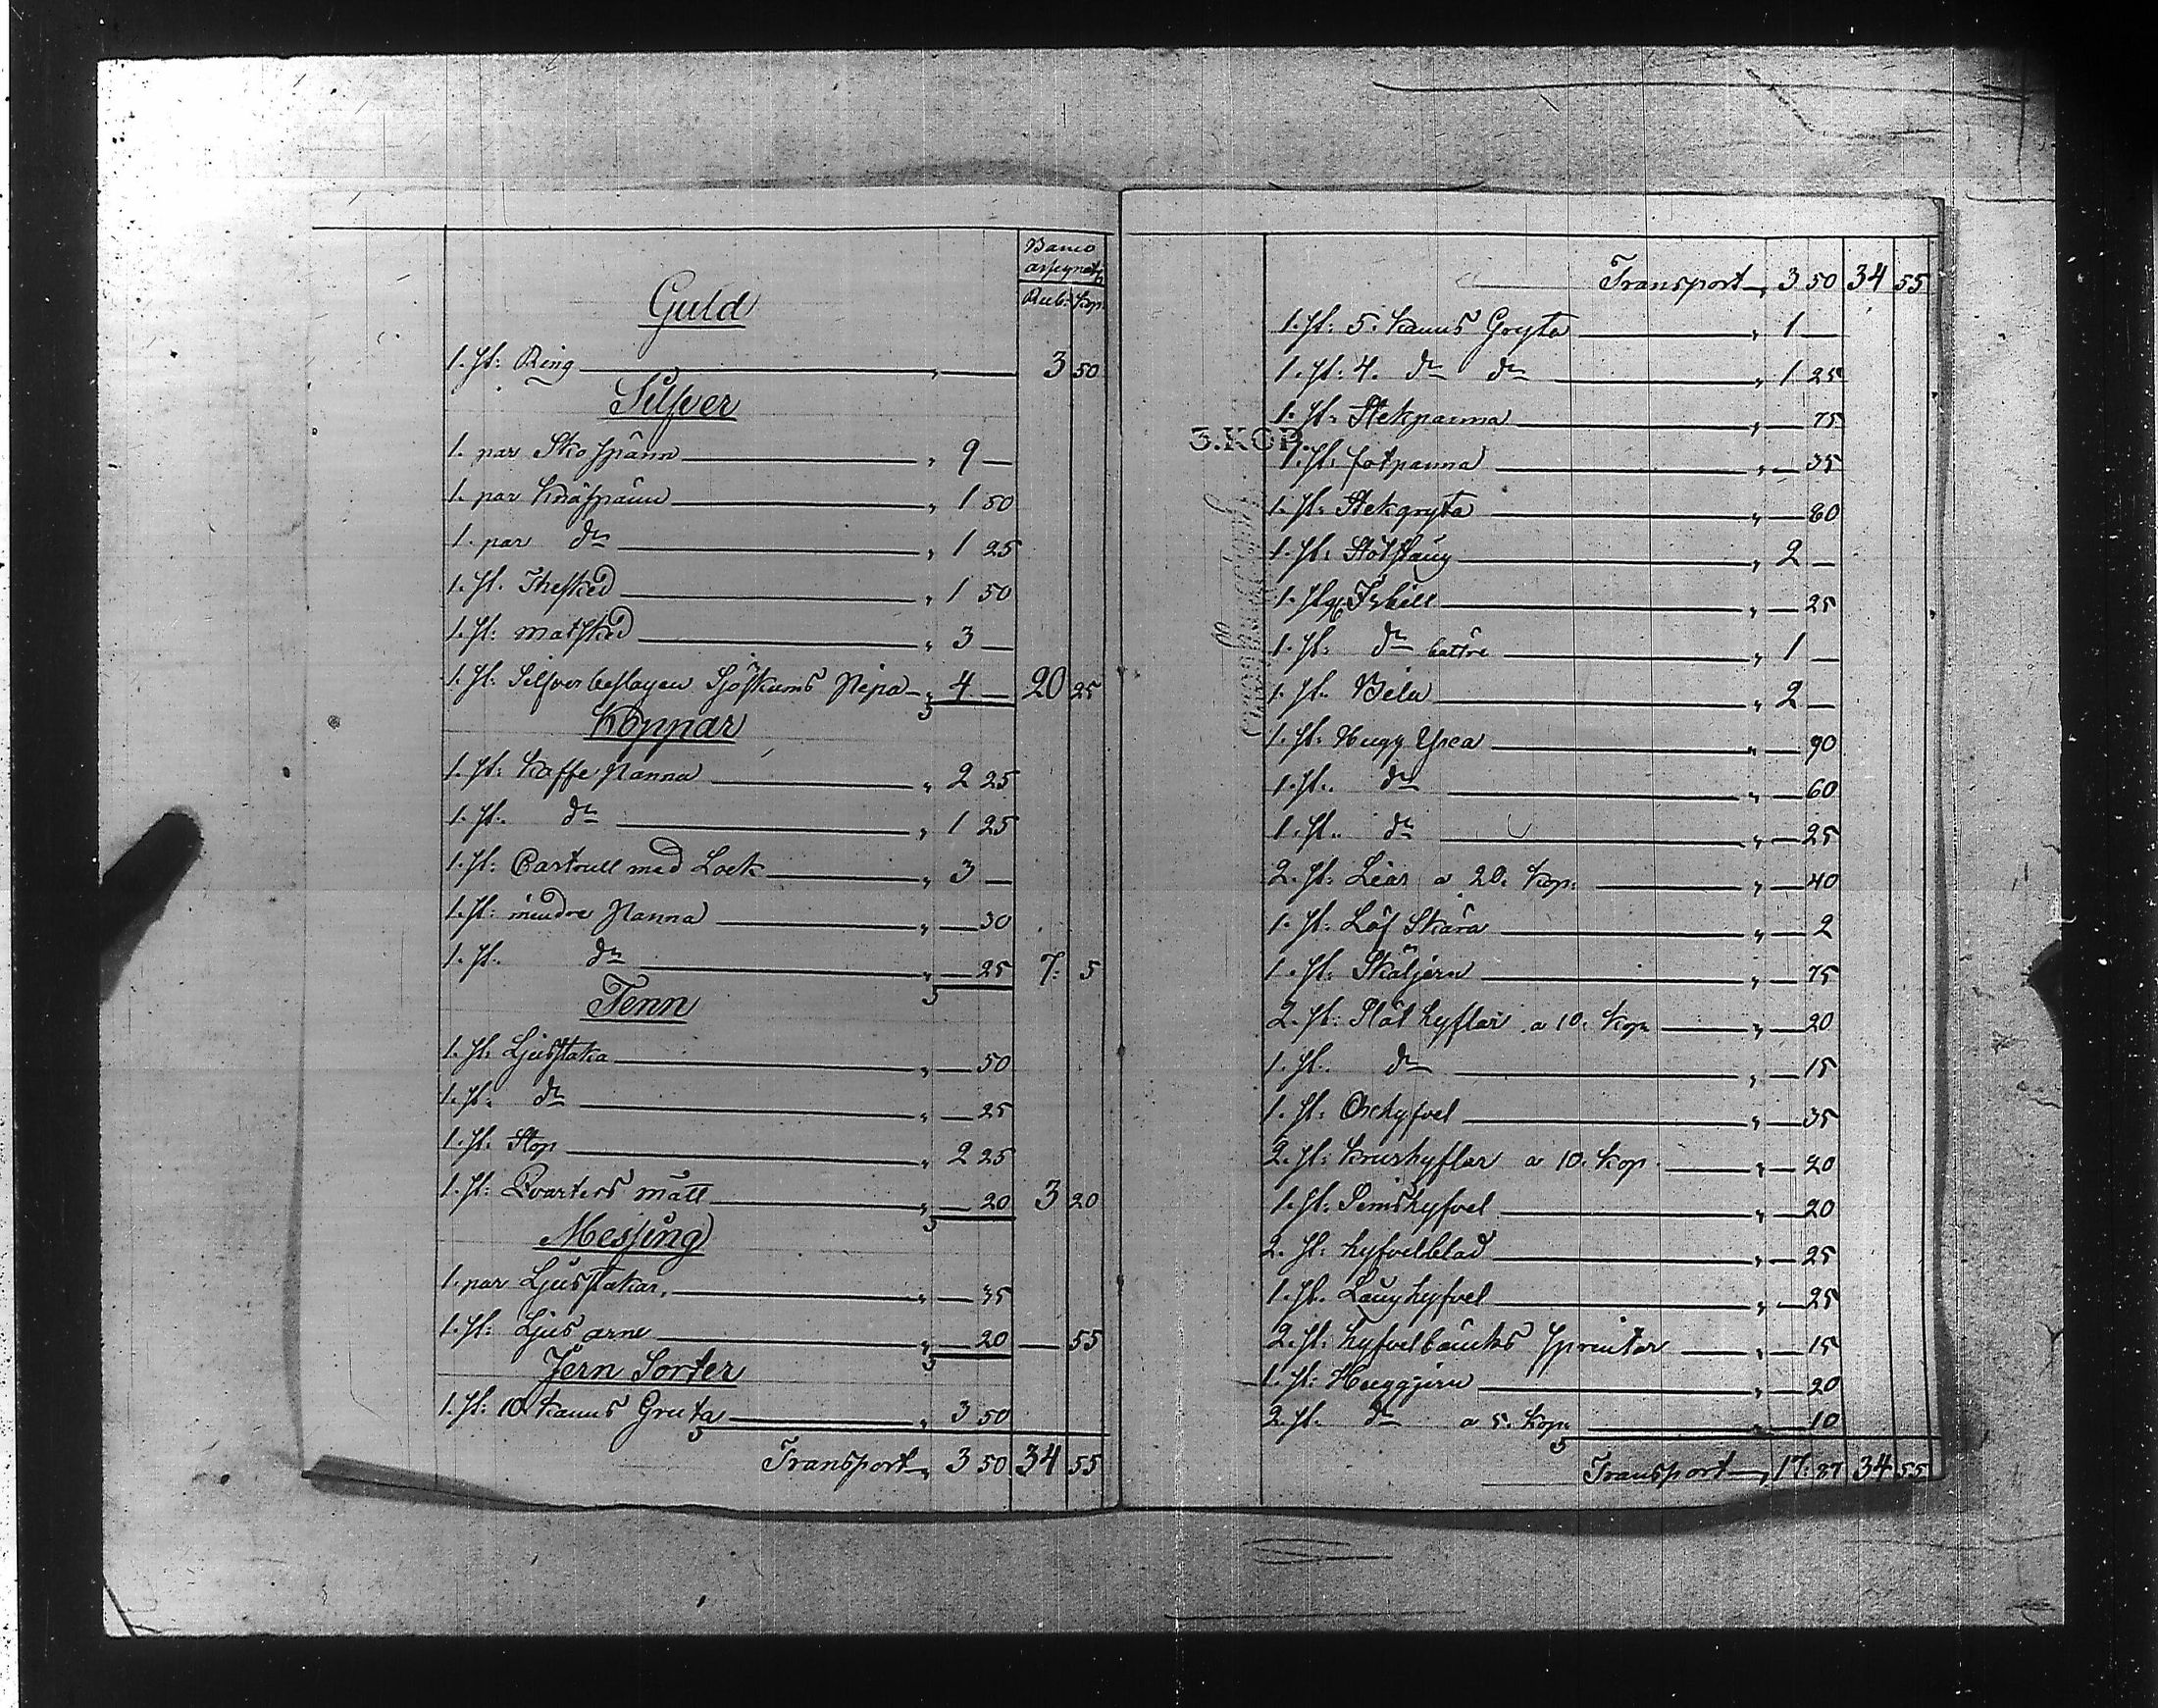 Banco
assignat:r
Rub: Kop:
Guld
1. st: Ring — " — 3 50
Silfver
1. par Skospänn — " 9 —
1. par Knäspänn — " 1 50
1. par d:o — " 1 25
1. st. Thesked — " 1 50
1. st: matsked — " 3 —
1. st: Silfverbeslagen Sjöskums Pipa — " 4 — 20 25
Koppar
1. st: Kaffe Panna — " 2 25
1. st. d:o — " 1 25
1. st: Castrull med Lock — " 3 —
1. st: mindre Panna — " — 30
1. st. d:o — " — 25 7: 5
Tenn
1. st: Ljusstaka — " — 50
1. st. d:o — " — 25
1. st. Stop — " 2 25
1. st: Qvarters mått — " — 20 3 20
Messing
1. par Ljusstakar, — " — 35
1. st: Ljus arm — " — 20 — 55
Jern Sorter
1. st: 10 Kanns Gruta — " 3 50
Transport — " 3 50 34 55
Transport — " 3 50 34 55
1. st: 5. Kanns Gryta — " 1 —
1. st: 4. d:o d:o — " 1 25
1. st: Stekpanna — " — 75
3. KOP.
1. st: fotpanna — " — 35
1. st: Stekgryta — " — 80
1. st: Stötstång — " 2 —
1. st: Isbill — " — 25
1. st: d:o bättre — " 1 —
1. st. Bila — " 2 —
1. st: Hugg Yxa — " — 90
1. st. d:o — " — 60
1. st. d:o — " — 25
2. st: Liar a 20. Kop: — " — 40
1. st: Löf Skära — " — 2
1. st: Skäljern — " — 75
2. st: Slät hyflar a 10. Kop: — " — 20
1. st. d:o — " — 15
1. st: Oxhyfvel — " — 35
2. st: Krushyflar a 10. Kop. — " — 20
1. st: Simshyfvel — " — 20
2. st: hyfvelblad — " — 25
1. st. Långhyfvel — " — 25
2. st: hyfvelbänks sprintar — " — 15
1. st: Huggjern — " — 20
2. st. d:o a 5. Kop: — " — 10
Transport — " 17: 87 34 55